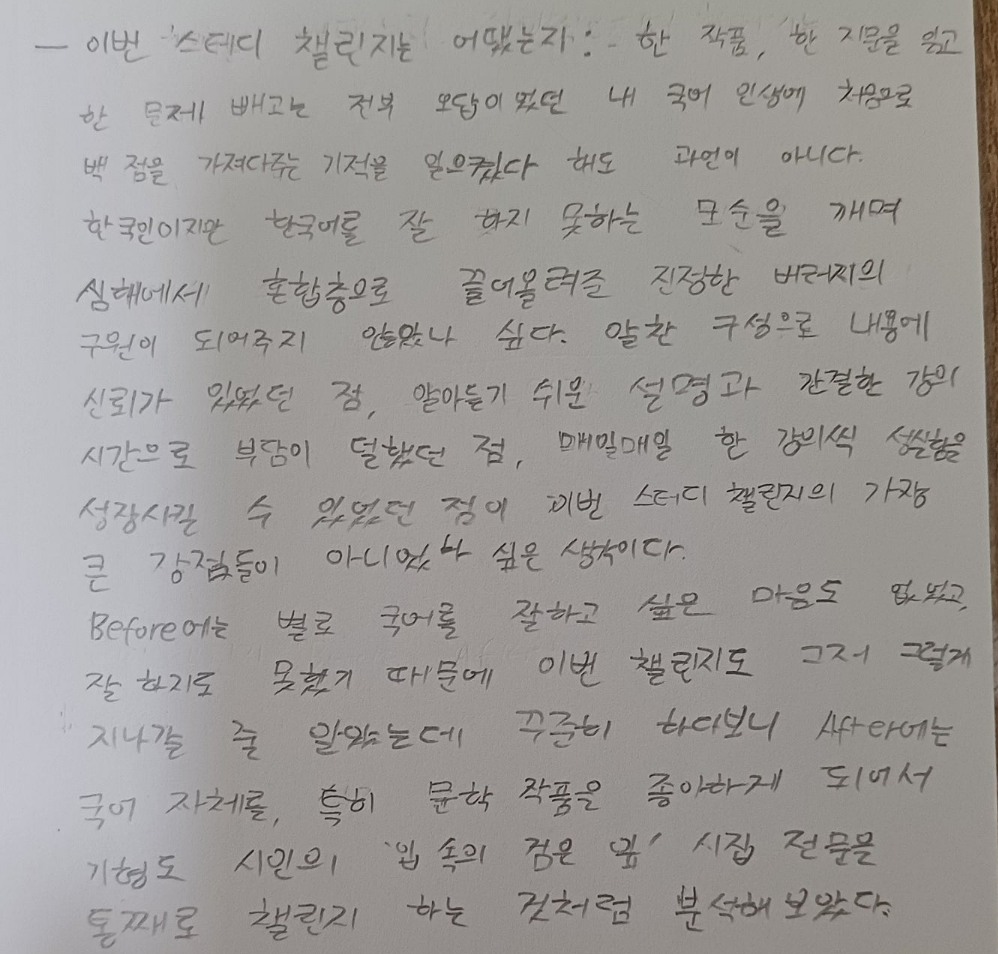 — 이번 스터디 챌린지는 어땠는지: 한 작품, 한 지문을 읽고
한 문제 빼고는 전부 오답이었던 내 국어 인생에 처음으로
백 점을 가져다주는 기적을 일으켰다 해도 과언이 아니다.
한국인이지만 한국어를 잘 하지 못하는 모순을 깨며
심해에서 혼합층으로 끌어올려준 진정한 버러지의
구원이 되어주지 않았나 싶다. 알찬 구성으로 내용에
신뢰가 있었던 점, 알아듣기 쉬운 설명과 간결한 강의
시간으로 부담이 덜했던 점, 매일매일 한 강의씩 성실함을
성장시킬 수 있었던 점이 이번 스터디 챌린지의 가장
큰 강점들이 아니었나 싶은 생각이다.
Before에는 별로 국어를 잘하고 싶은 마음도 없었고,
잘 하지도 못했기 때문에 이번 챌린지도 그저 그렇게
지나갈 줄 알았는데 꾸준히 하다보니 After에는
국어 자체를, 특히 문학 작품을 좋아하게 되어서
기형도 시인의 '입 속의 검은 잎' 시집 전문을
통째로 챌린지 하는 것처럼 분석해보았다.